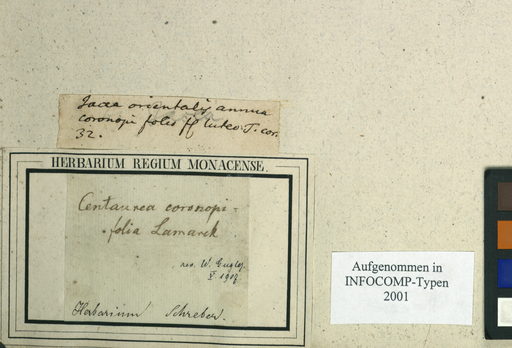 Jacea orientalis annua
coronopi folio fl luteo T. cor.
32.
HERBARIUM REGIUM MONACENSE.
Centaurea coronopi=
folia Lamarck
W.
V. 1907
Herbarium Schreber.
Aufgenommen in
INFOCOMP-Typen
2001